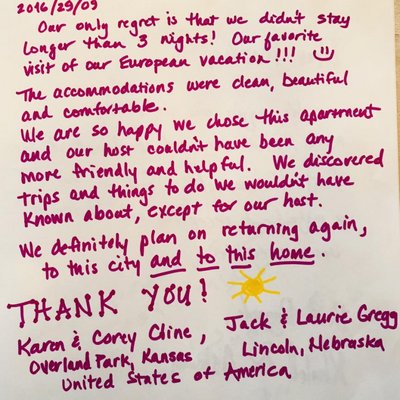 2016/29/09
Our only regret is that we didn't stay
longer than 3 nights! Our favorite
visit of our European vacation!!!
The accommodations were clean, beautiful
and comfortable.
We are so happy we chose this apartment
and our host couldn't have been any
more friendly and helpful. We discovered
trips and things to do we wouldn't have
known about, except for our host.
We definitely plan on returning again,
to this city and to this home.
THANK YOU!
Karen & Corey Cline,
Overland Park, Kansas
Jack & Laurie Gregg
Lincoln, Nebraska
United States of America